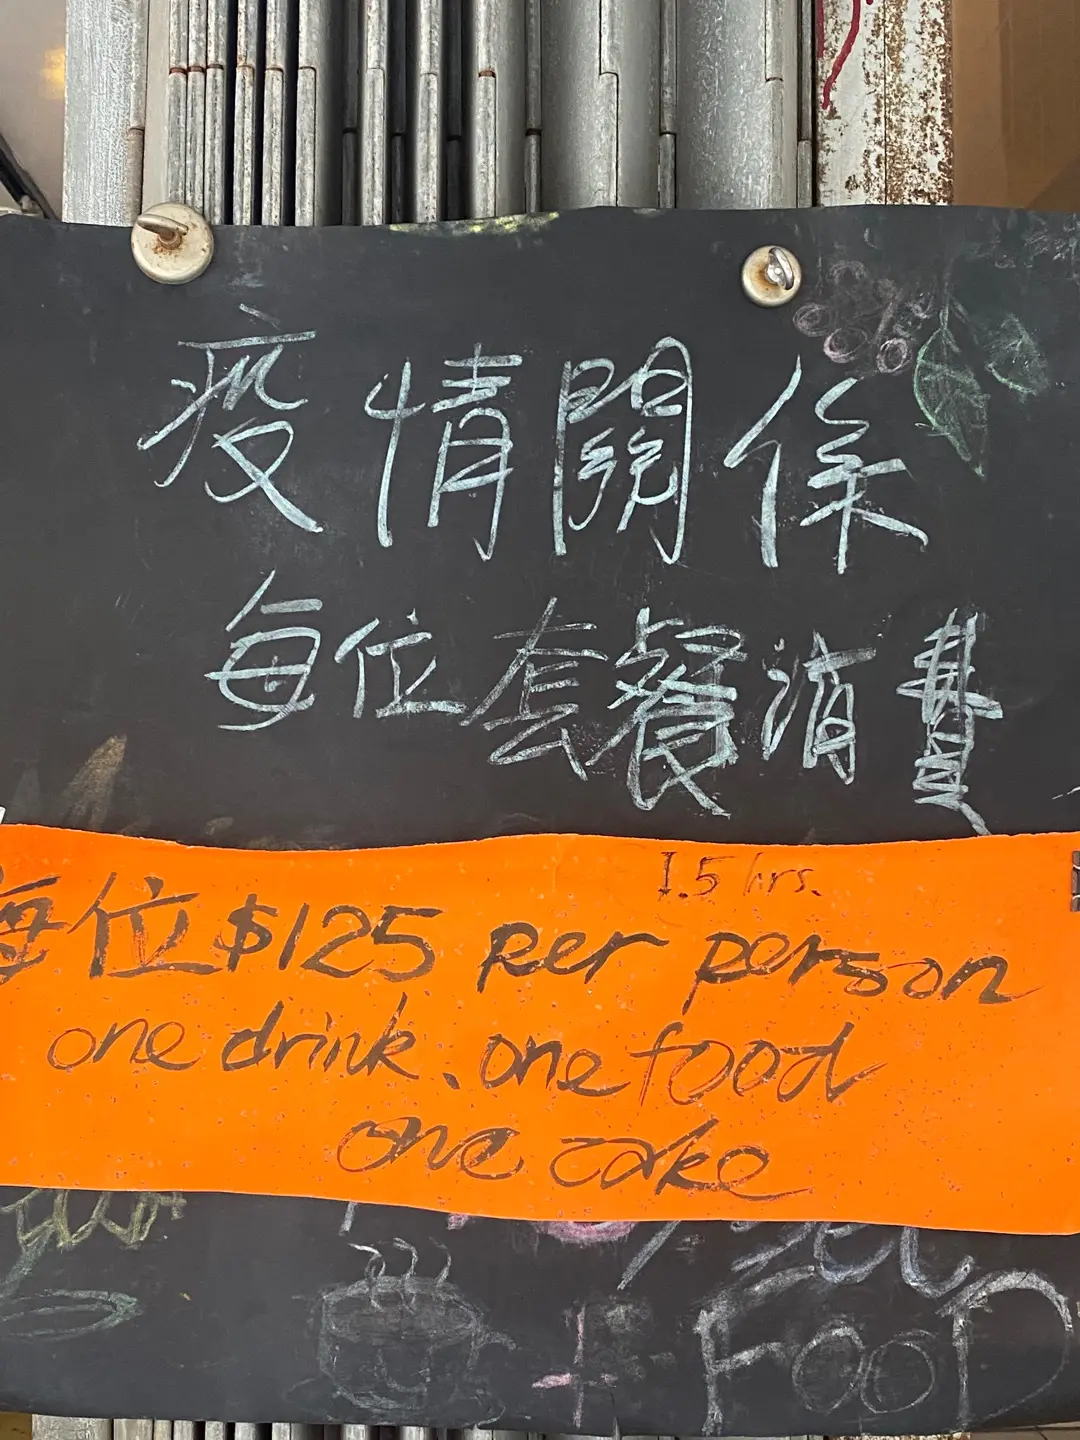 疫情關係
每位套餐消費
1.5 hrs.
每位$125 per person
one drink、one food
one cake
+ FOOD